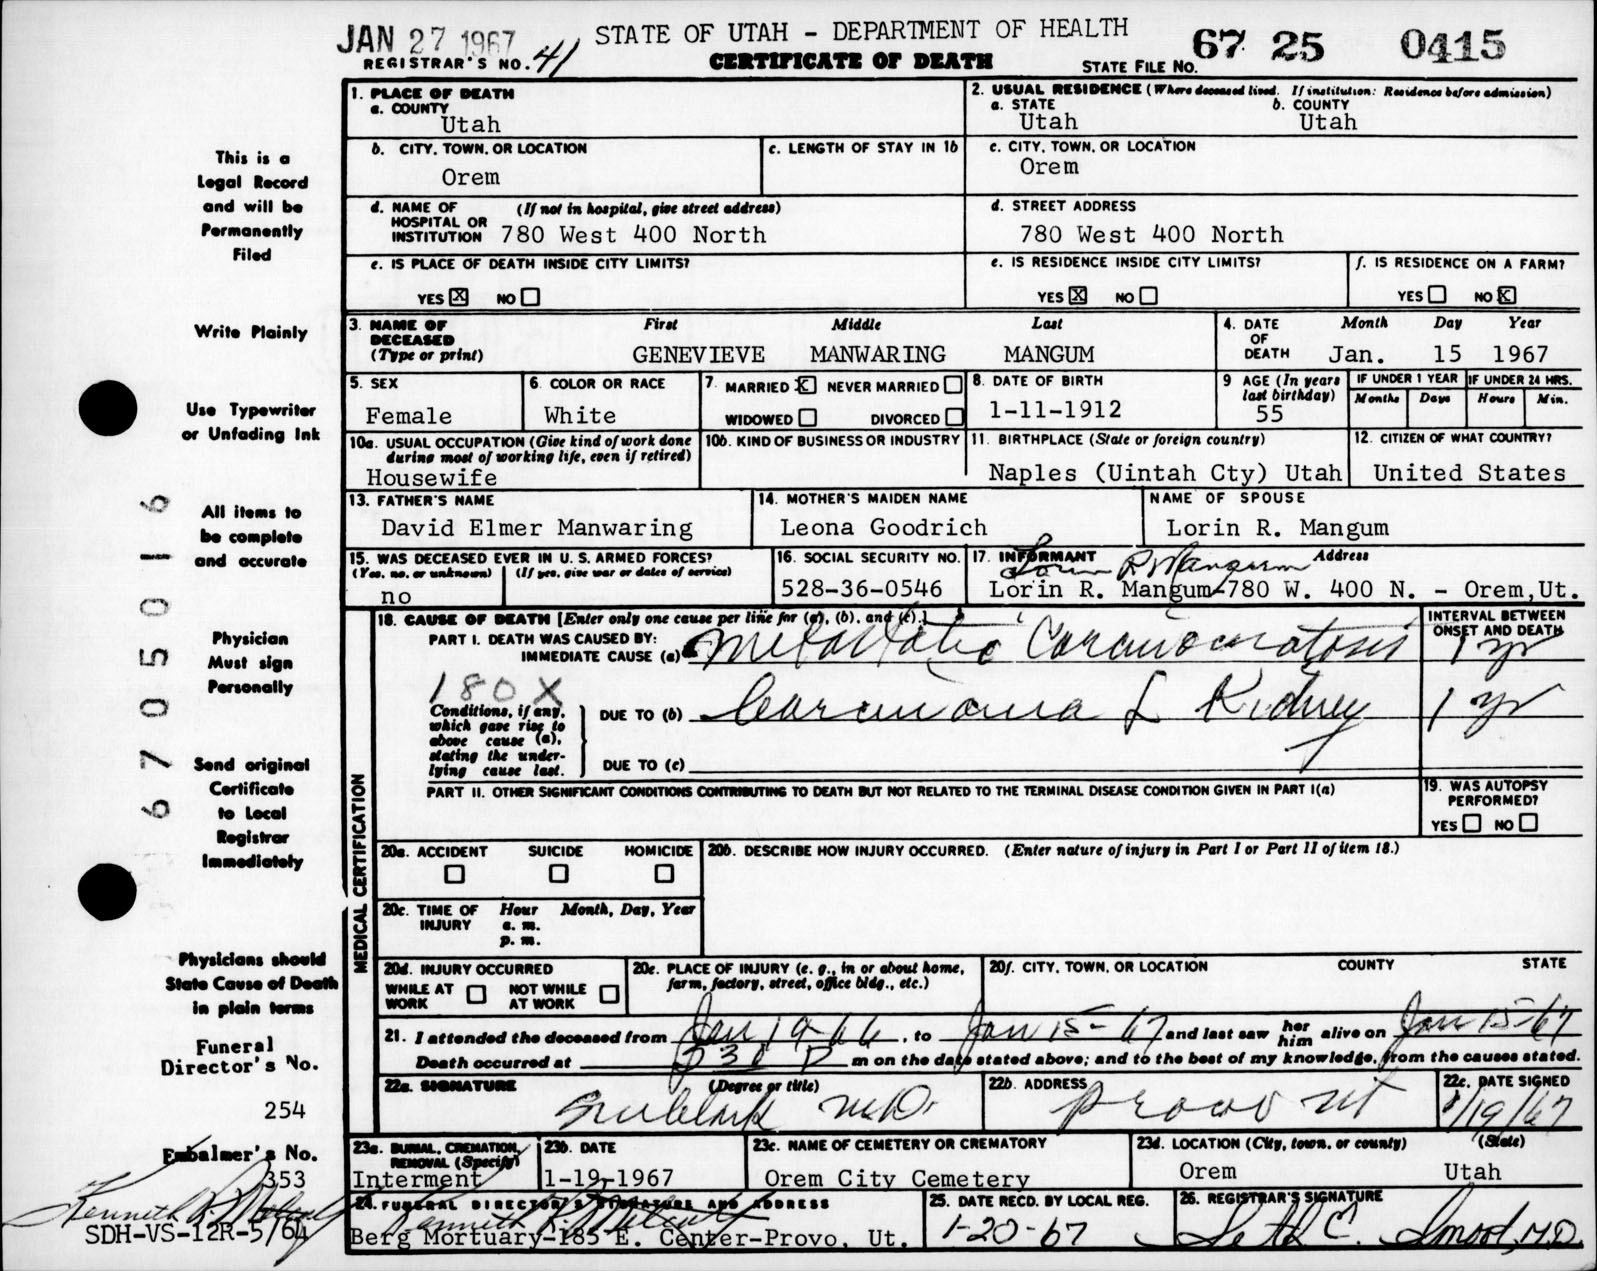 JAN 27 1967
STATE OF UTAH - DEPARTMENT OF HEALTH
REGISTRAR'S NO. 41
CERTIFICATE OF DEATH
STATE FILE NO. 67 25 0415
This is a
Legal Record
and will be
Permanently
Filed
Write Plainly
Use Typewriter
or Unfading Ink
All items to
be complete
and accurate
Physician
Must sign
Personally
Send original
Certificate
to Local
Registrar
Immediately
Physicians should
State Cause of Death
in plain terms
Funeral
Director's No.
254
Embalmer's No.
353
SDH-VS-12R-5/64
67 05016
1. PLACE OF DEATH
a. COUNTY
Utah
2. USUAL RESIDENCE (Where deceased lived. If institution: Residence before admission)
a. STATE b. COUNTY
Utah Utah
b. CITY, TOWN, OR LOCATION
Orem
c. LENGTH OF STAY IN 1b
c. CITY, TOWN, OR LOCATION
Orem
d. NAME OF (If not in hospital, give street address)
HOSPITAL OR
INSTITUTION 780 West 400 North
d. STREET ADDRESS
780 West 400 North
e. IS PLACE OF DEATH INSIDE CITY LIMITS?
YES X NO
e. IS RESIDENCE INSIDE CITY LIMITS?
YES X NO
f. IS RESIDENCE ON A FARM?
YES NO X
3. NAME OF First Middle Last
DECEASED
(Type or print) GENEVIEVE MANWARING MANGUM
4. DATE Month Day Year
OF
DEATH Jan. 15 1967
5. SEX
Female
6. COLOR OR RACE
White
7. MARRIED X NEVER MARRIED
WIDOWED DIVORCED
8. DATE OF BIRTH
1-11-1912
9 AGE (In years
last birthday)
55
IF UNDER 1 YEAR IF UNDER 24 HRS.
Months Days Hours Min.
10a. USUAL OCCUPATION (Give kind of work done
during most of working life, even if retired)
Housewife
10b. KIND OF BUSINESS OR INDUSTRY
11. BIRTHPLACE (State or foreign country)
Naples (Uintah Cty) Utah
12. CITIZEN OF WHAT COUNTRY?
United States
13. FATHER'S NAME
David Elmer Manwaring
14. MOTHER'S MAIDEN NAME
Leona Goodrich
NAME OF SPOUSE
Lorin R. Mangum
15. WAS DECEASED EVER IN U. S. ARMED FORCES?
(Yes, no, or unknown) (If yes, give war or dates of service)
no
16. SOCIAL SECURITY NO.
528-36-0546
17. INFORMANT Address
Lorin R Mangum
Lorin R. Mangum-780 W. 400 N. - Orem,Ut.
MEDICAL CERTIFICATION
18. CAUSE OF DEATH [Enter only one cause per line for (a), (b), and (c).]
INTERVAL BETWEEN
ONSET AND DEATH
PART I. DEATH WAS CAUSED BY:
IMMEDIATE CAUSE (a) Metastatic Carcinomatosis 1 yr
180X
Conditions, if any,
which gave rise to
above cause (a),
stating the under-
lying cause last.
DUE TO (b) Carcinoma L Kidney 1 yr
DUE TO (c)
PART II. OTHER SIGNIFICANT CONDITIONS CONTRIBUTING TO DEATH BUT NOT RELATED TO THE TERMINAL DISEASE CONDITION GIVEN IN PART I(a)
19. WAS AUTOPSY
PERFORMED?
YES NO
20a. ACCIDENT SUICIDE HOMICIDE
20b. DESCRIBE HOW INJURY OCCURRED. (Enter nature of injury in Part I or Part II of item 18.)
20c. TIME OF Hour Month, Day, Year
INJURY a. m.
p. m.
20d. INJURY OCCURRED
WHILE AT NOT WHILE
WORK AT WORK
20e. PLACE OF INJURY (e. g., in or about home,
farm, factory, street, office bldg., etc.)
20f. CITY, TOWN, OR LOCATION COUNTY STATE
21. I attended the deceased from Jan 19 66, to Jan 15-67 and last saw her him alive on Jan 15-67
Death occurred at P m on the date stated above; and to the best of my knowledge, from the causes stated.
22a. SIGNATURE (Degree or title)
Clark M.D.
22b. ADDRESS
Provo Ut
22c. DATE SIGNED
1/19/67
23a. BURIAL, CREMATION,
REMOVAL (Specify)
Interment
23b. DATE
1-19-1967
23c. NAME OF CEMETERY OR CREMATORY
Orem City Cemetery
23d. LOCATION (City, town, or county) (State)
Orem Utah
24. FUNERAL DIRECTOR'S SIGNATURE AND ADDRESS
Berg Mortuary-185 E. Center-Provo, Ut.
25. DATE RECD. BY LOCAL REG.
1-20-67
26. REGISTRAR'S SIGNATURE
Seth E. Smoot, M.D.